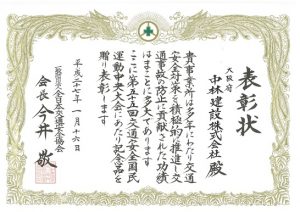 表彰状
大阪府
中林建設株式会社 殿
貴事業所は多年にわたり交通
安全対策を積極的に推進し交
通事故の防止に貢献された功績
はまことに多大であります
ここに第五十五回交通安全国民
運動中央大会にあたり記念品を
贈り表彰します
平成二十七年一月十六日
一般財団法人全日本交通安全協会
会長 今井 敬